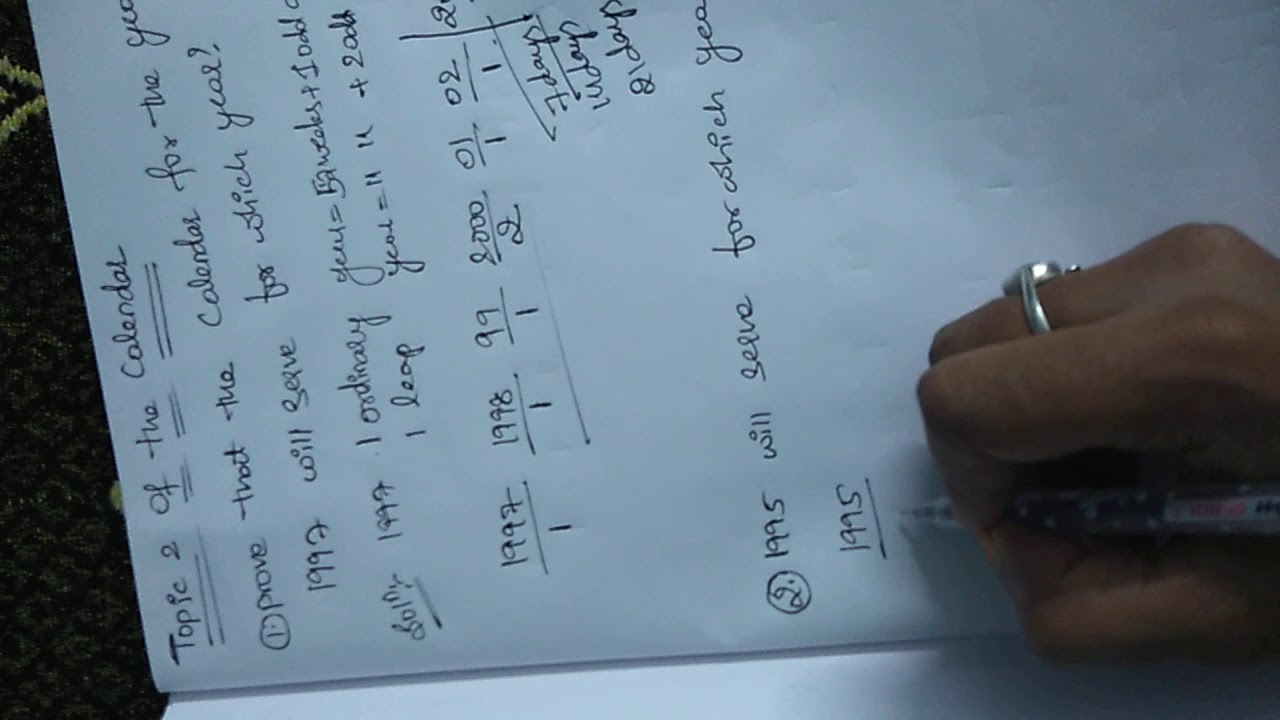 Topic 2 Of the Calendar
① prove that the Calendar for the yea
1997 will serve for which year?
Solⁿ:- 1997 . 1 ordinary year = 52weeks + 1 odd
1 leap year = 11 11 + 2odd
1997 . 1998 . 99 2000 . 01 . 02
1 1 1 2 1 1
7days
14days
21days
②. 1995 will serve for which yea
1995